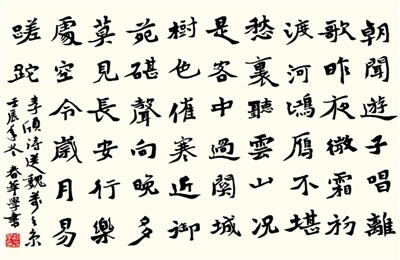 朝聞遊子唱離
歌昨夜微霜初
渡河鴻雁不堪
愁裏聽雲山況
是客中過關城
樹也催寒近御
苑碪聲向晚多
莫見長安行樂
處空令歲月易
蹉跎
李頎詩送魏萬之京
壬辰年冬春華學書